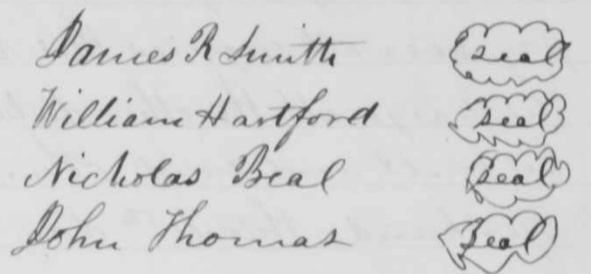 James R Smith seal
William Hartford seal
Nicholas Beal seal
John Thomas seal